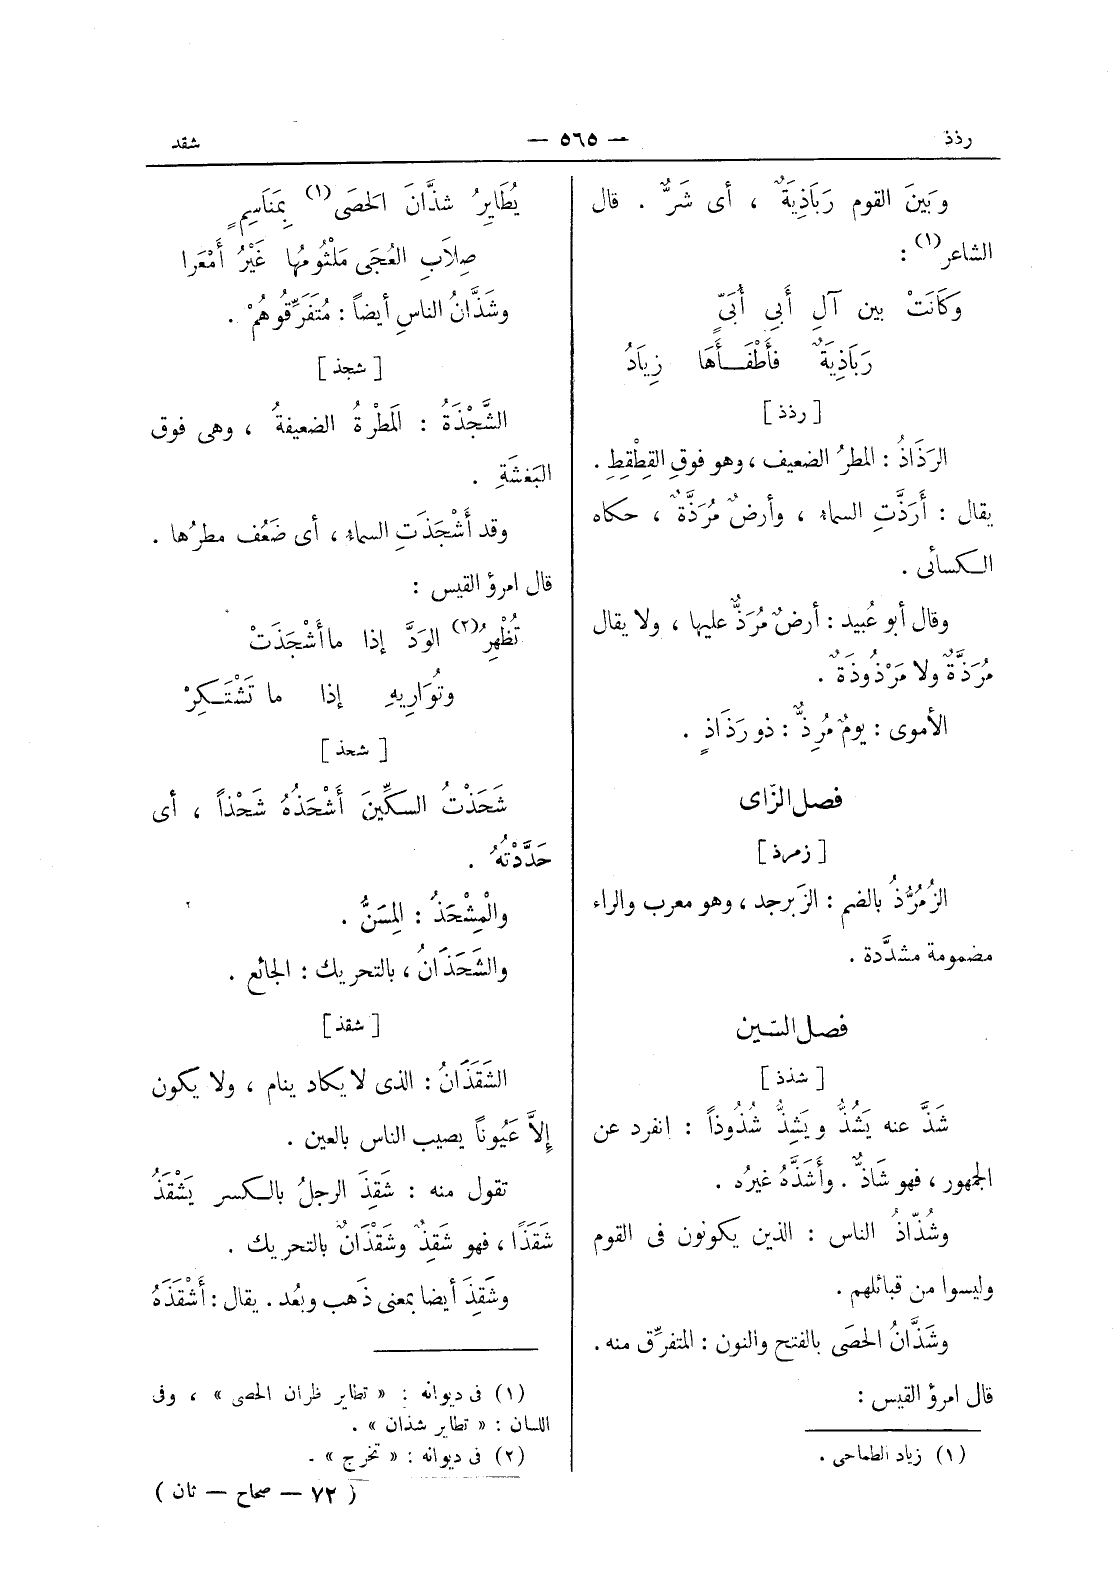 رذذ
— ٥٦٥ —
شقد
وَبَينَ القوم رَبَاذِيَةٌ ، أى شَرٌّ . قال
الشاعر(١) :
وَكَانَتْ بين آلِ أَبِي أُبَيٍّ
رَبَاذِيَةٌ فأَطْفَـأَهَا زِيَادُ
[ رذذ ]
الرَذَاذُ : المطرُ الضعيف ، وهو فوق القِطْقِطِ .
يقال : أَرَذَّتِ السماء ، وأرضٌ مُرَذَّةٌ ، حكاه
الكسائى .
وقال أبو عُبيد : أرضٌ مُرَذٌّ عليها ، ولا يقال
مُرَذَّةٌ ولا مَرْذُوذَةٌ .
الأموى : يومٌ مُرِذٌّ : ذو رَذَاذٍ .
فصل الزّاى
[ زمرذ ]
الزُمُرُّذُ بالضم : الزَبرجد ، وهو معرب والراء
مضمومة مشدَّدة .
فصل الشين
[ شذذ ]
شَذَّ عنه يَشُذُّ ويَشِذُّ شُذُوذاً : انفرد عن
الجمهور ، فهو شَاذٌّ . وأَشَذَّهُ غيرُه .
وشُذّاذُ الناس : الذين يكونون فى القوم
وليسوا من قبائلهم .
وشَذَّانُ الحصَى بالفتح والنون : المتفرِّق منه .
قال امرؤ القيس :
(١) زياد الطماحى .
يُطَايِرُ شذَّانَ الحَصَى(١) بِمَنَاسِمٍ
صِلاَبِ العُجَى مَلْثُومُها غَيْرُ أَمْعَرا
وشَذَّانُ الناسِ أيضاً : مُتَفَرِّقُوهُمْ .
[ شجذ ]
الشَّجْذَةُ : المَطْرةُ الضعيفةُ ، وهى فوق
البَغشَةِ .
وقد أَشْجَذَتِ السماء ، أى ضَعُف مطرُها .
قال امرؤ القيس :
تُظْهِرُ(٢) الوَدَّ إذا ما أَشْجَذَتْ
وتُوَارِيهِ إذا ما تَشْتَكِرْ
[ شحذ ]
شَحَذْتُ السكِّينَ أَشْحَذُهُ شَحْذاً ، أى
حَدَّدْتهُ .
والْمِشْحَذُ : المِسَنُّ .
والشَحَذَانُ ، بالتحريك : الجائع .
[ شقذ ]
الشَقَذَانُ : الذى لا يكاد ينام ، ولا يكون
إلاَّ عَيُوناً يصيب الناس بالعين .
تقول منه : شَقِذَ الرجلُ بالكسر يَشْقَذُ
شَقَذًا ، فهو شَقِذٌ وشَقَذَانٌ بالتحريك .
وشَقِذَ أيضا بمعنى ذَهب وبعُد . يقال : أَشْقَذَهُ
(١) فى ديوانه : « تطاير ظران الحصى » ، وفى
اللسان : « تطاير شذان » .
(٢) فى ديوانه : « تخرج » .
( ٧٢ — صحاح — ثان )